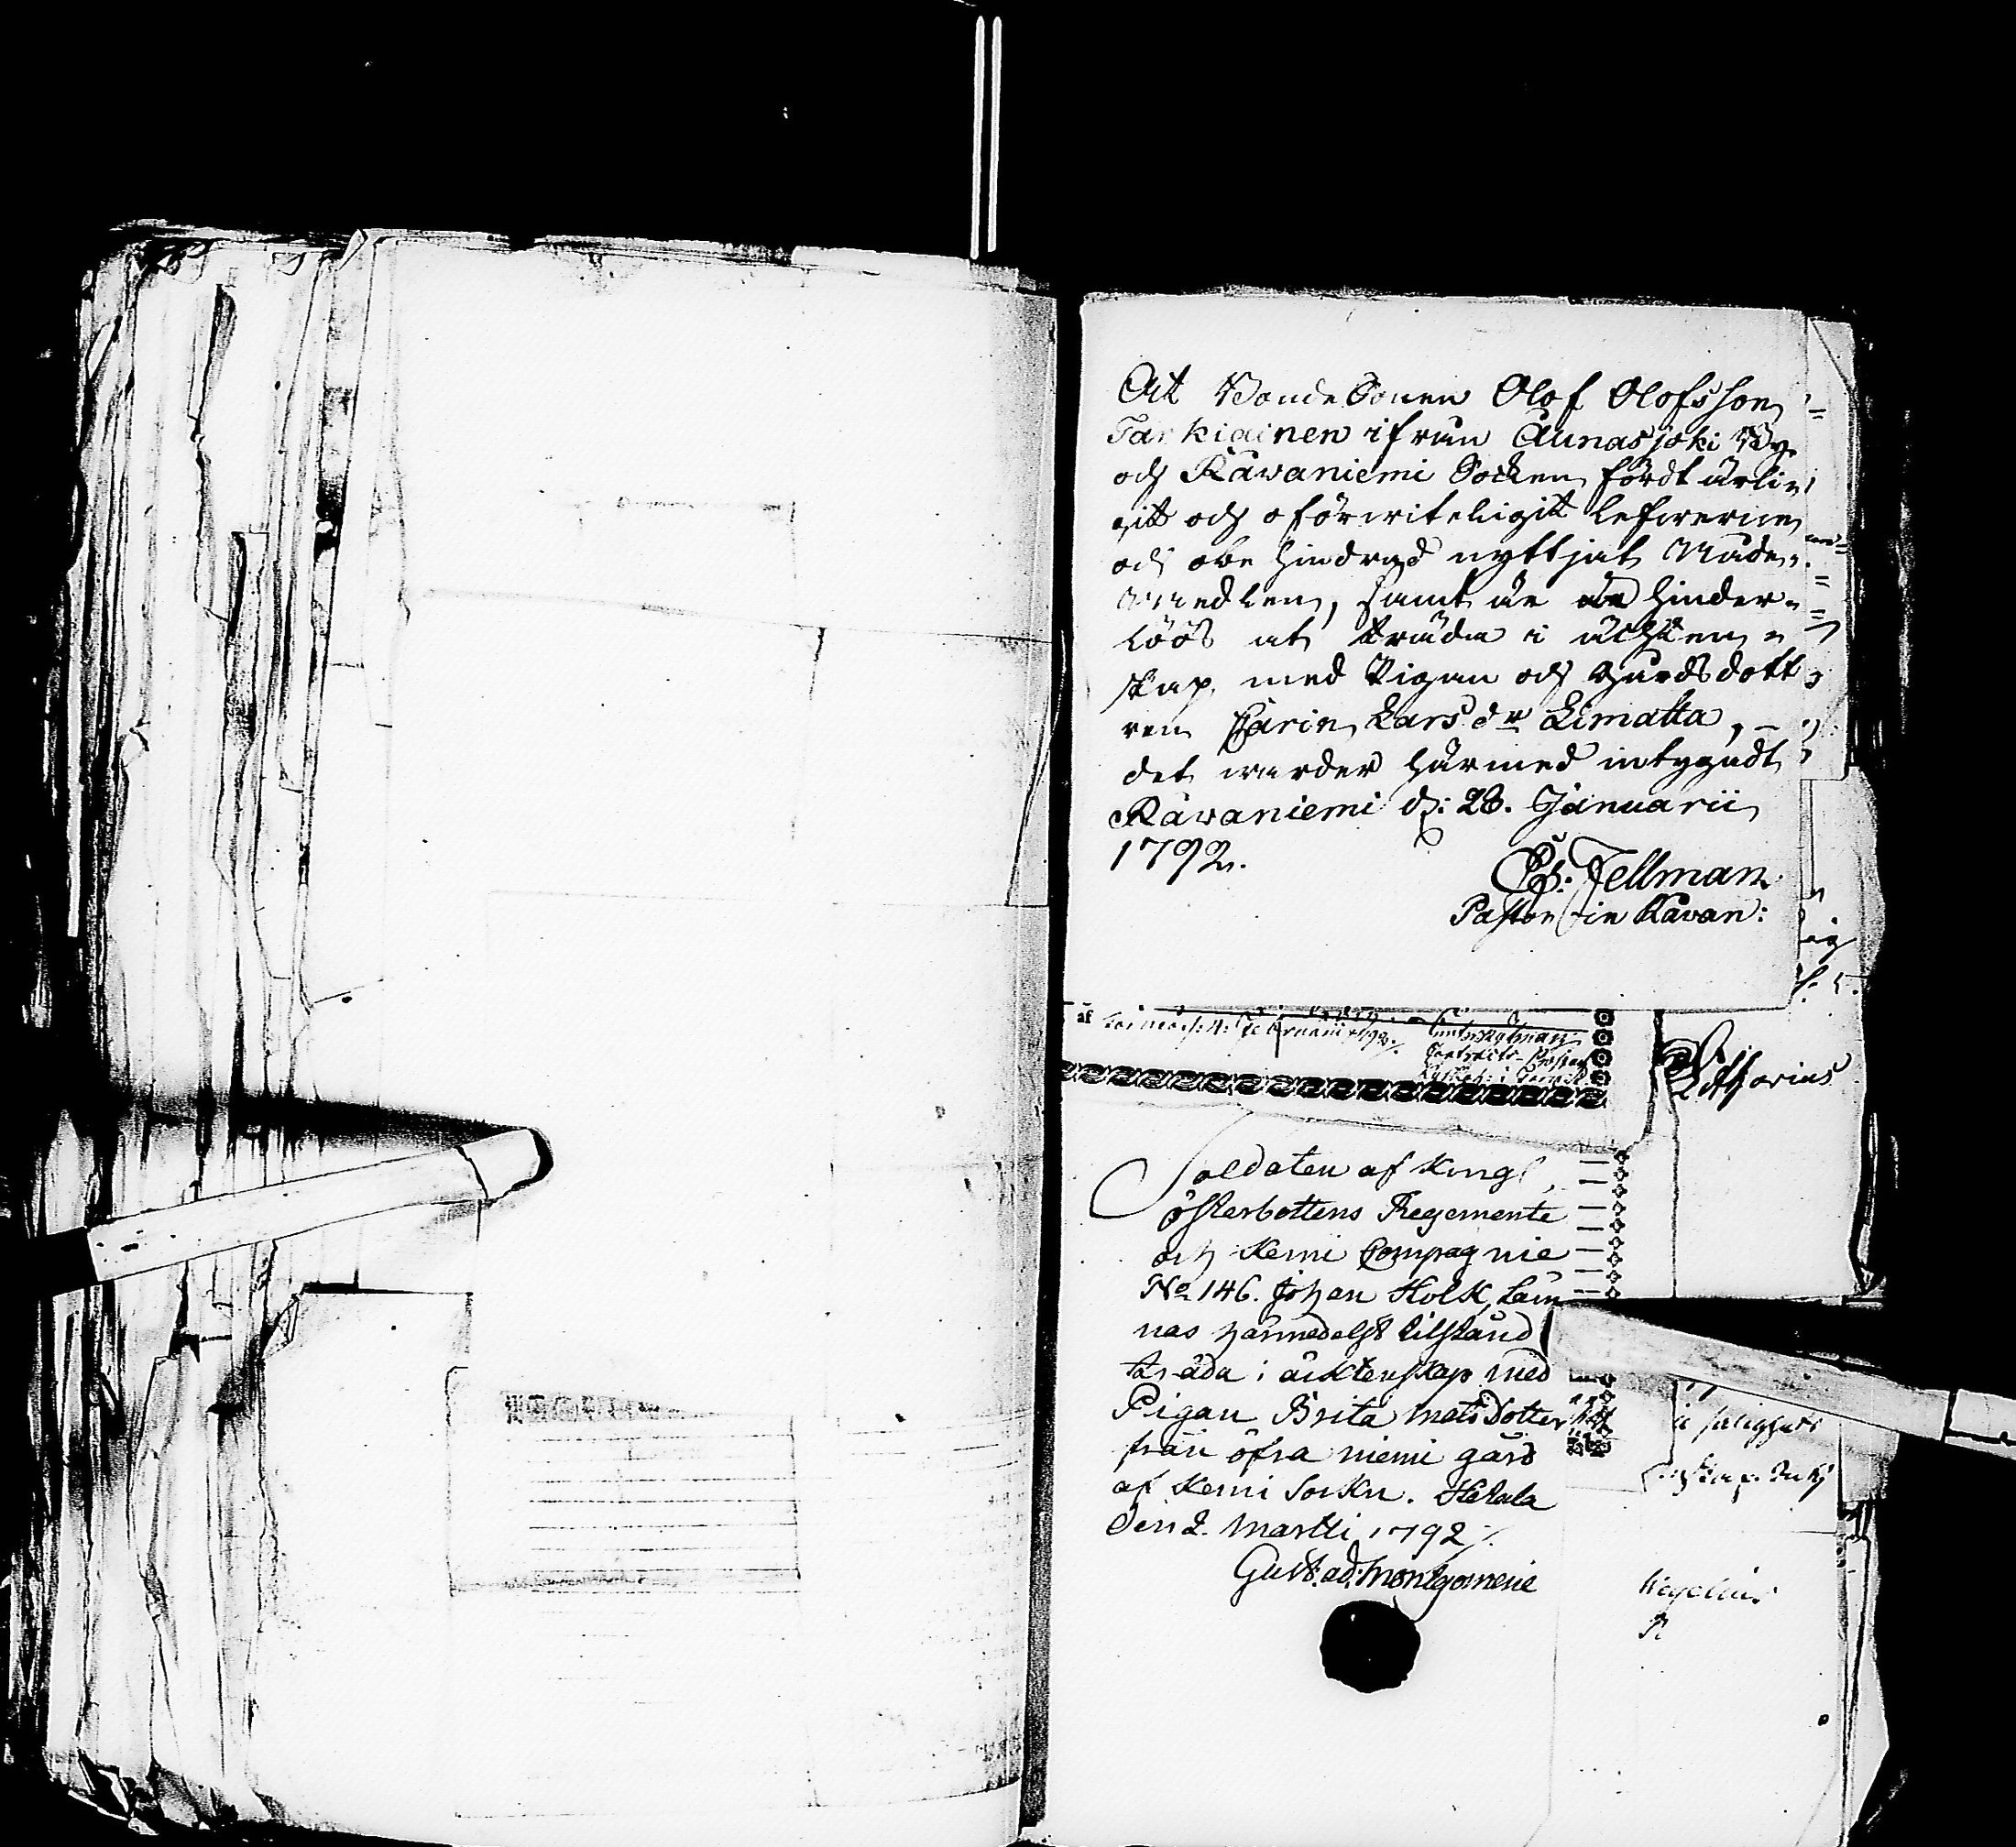 At BondeSonen Olof Olofsson
Tarkiainen ifrån Aunasjoki By
och Råwaniemi Socken fördt ärli=
gitt och oförwiteligitt lefwerne
och obehindrad nyttjat Nåde=
Medlen, samt är hinder=
löös at träda i ächten=
skap med Pigan och Gårdsdott
ren Carin Lars dr Limatta, –
det warder härmed intygadt
Råwaniemi d: 28. Januarii
1792.
Es: Fellman
Pastor in Råwan:
Soldaten af Kongl,
österbottens Regemente
och Kemi Compagnie
No 146. Johan Holk, Läm
nas härmedelst tilstånd
träda i äcktenskap med
Pigan Brita Mats Dotter
från öfra niemi gård
af Kemi Sockn.
Den 2. Martii 1792 /.
Gust: ad: Montgomerie